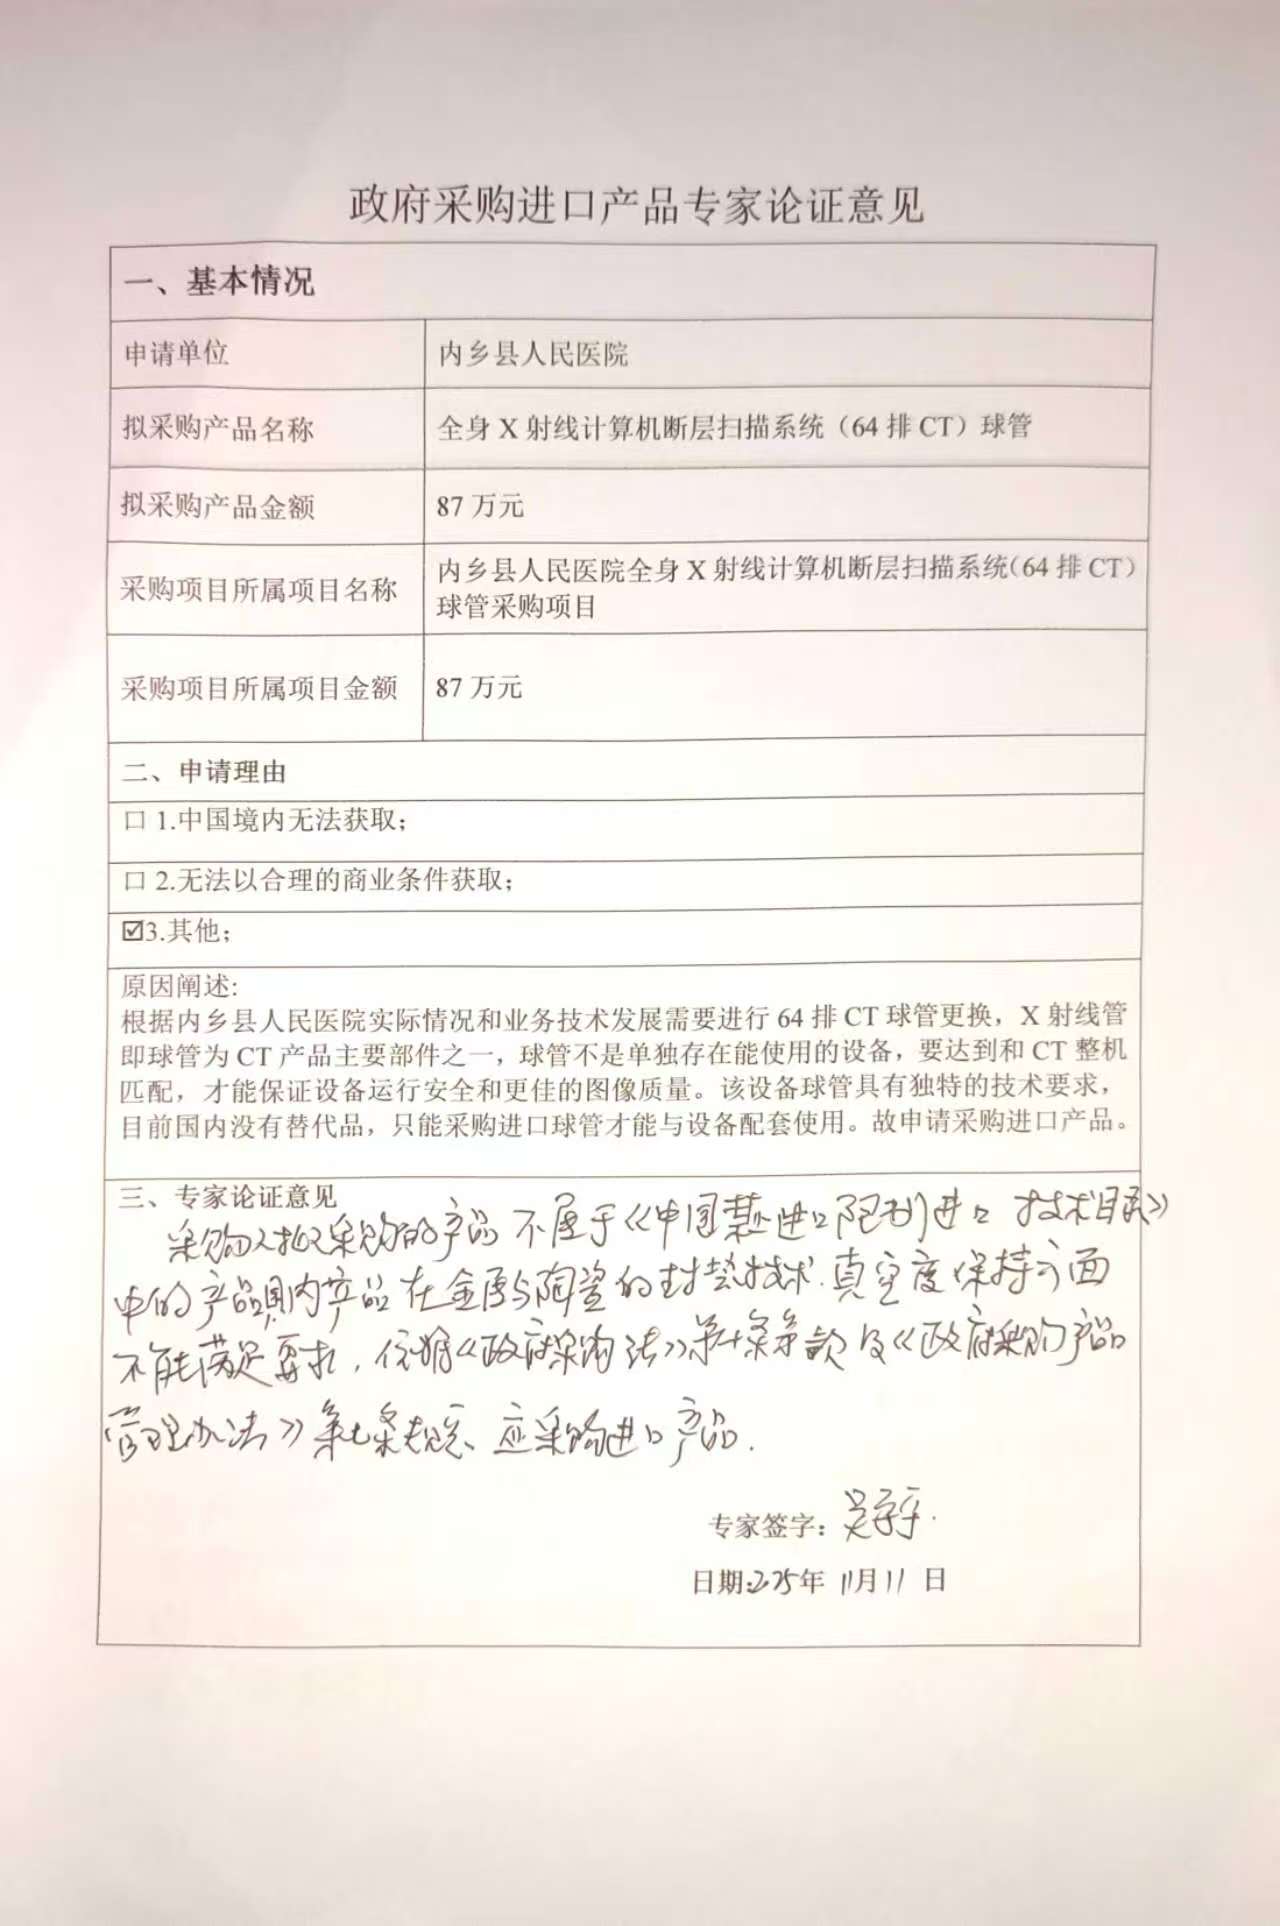 政府采购进口产品专家论证意见
一、基本情况
申请单位 内乡县人民医院
拟采购产品名称 全身X射线计算机断层扫描系统（64排CT）球管
拟采购产品金额 87万元
采购项目所属项目名称 内乡县人民医院全身X射线计算机断层扫描系统（64排CT）
球管采购项目
采购项目所属项目金额 87万元
二、申请理由
口 1.中国境内无法获取；
口 2.无法以合理的商业条件获取；
☑3.其他；
原因阐述:
根据内乡县人民医院实际情况和业务技术发展需要进行64排CT球管更换，X射线管
即球管为CT产品主要部件之一，球管不是单独存在能使用的设备，要达到和CT整机
匹配，才能保证设备运行安全和更佳的图像质量。该设备球管具有独特的技术要求，
目前国内没有替代品，只能采购进口球管才能与设备配套使用。故申请采购进口产品。
三、专家论证意见
采购人拟采购的产品不属于《中国禁止进口限制进口技术目录》
中的产品国内产品在金属与陶瓷的封接技术.真空度保持方面
不能满足要求，依据《政府采购法》第十条第款及《政府采购产品
管理办法》第七条规定、应采购进口产品.
专家签字：吴
日期:2025年11月11日